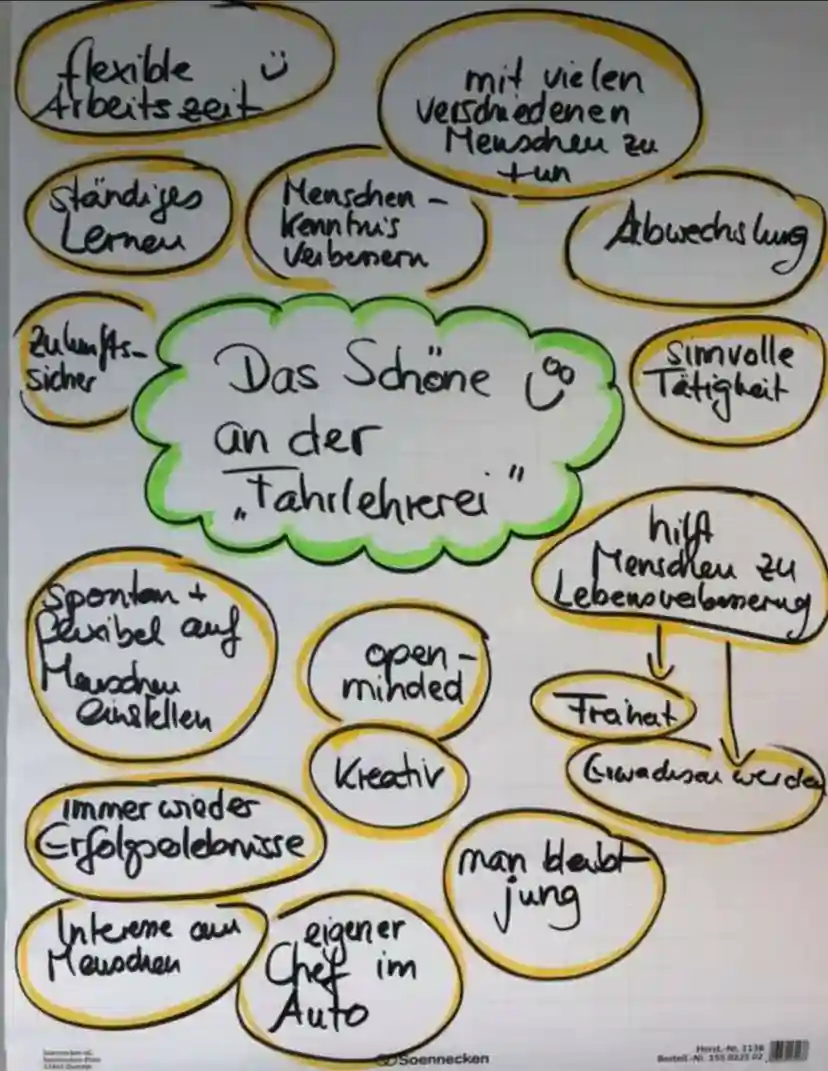 flexible
Arbeitszeit
mit vielen
verschiedenen
Menschen zu
tun
ständiges
Lernen
Menschen-
kenntnis
verbessern
Abwechslung
Zukunfts-
sicher
Das Schöne
an der
„Fahrlehrerei"
sinnvolle
Tätigkeit
hilft
Menschen zu
Lebensverbesserung
Freiheit
Erwachsen werden
spontan +
flexibel auf
Menschen
einstellen
open-
minded
Kreativ
immer wieder
Erfolgserlebnisse
man bleibt
jung
Interesse an
Menschen
eigener
Chef im
Auto
Soennecken